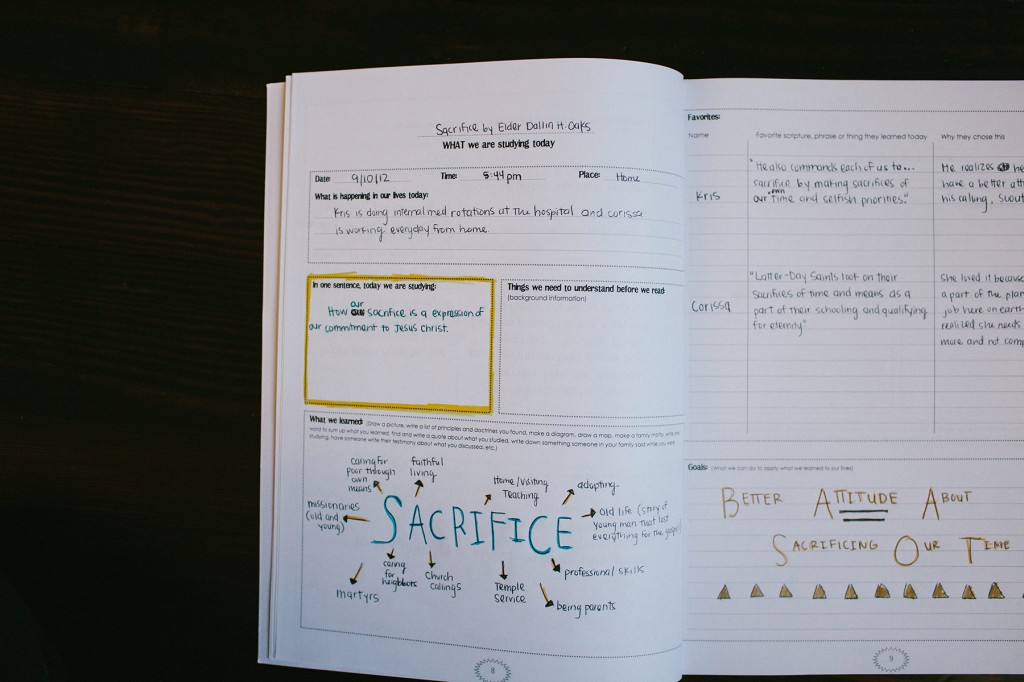 Sacrifice by Elder Dallin H. Oaks
WHAT we are studying today
Date: 9/10/12 Time: 5:44 pm Place: Home
What is happening in our lives today:
Kris is doing internal med rotations at the hospital and corissa
is working everyday from home.
In one sentence, today we are studying:
How our sacrifice is a expression of
our commitment to Jesus Christ.
Things we need to understand before we read:
(background information)
What we learned: (Draw a picture, write a list of principles and doctrines you found, make a diagram, draw a map, make a family motto, write one
word to sum up what you learned, find and write a quote about what you studied, write down something someone in your family said while you were
studying, have someone write their testimony about what you discussed, etc.)
caring for
poor through
own
means
faithful
living
Home/Visiting
Teaching
adopting
missionaries
(old and
young)
SACRIFICE
old life (story of
young man that lost
everything for the gospel)
martyrs
caring
for
neighbors
Church
callings
Temple
Service
professional skills
being parents
8
Favorites:
Name Favorite scripture, phrase or thing they learned today Why they chose this
Kris
"He also commands each of us to...
sacrifice by making sacrifices of
our own time and selfish priorities."
He realizes he
have a better
his calling,
Corissa
"Latter-Day Saints look on their
sacrifices of time and means as a
part of their schooling and qualifying
for eternity"
She loved it because
a part of the plan
job here on earth
realized she needs
more and not
Goals: (What we can do to apply what we learned to our lives)
BETTER ATTITUDE ABOUT
SACRIFICING OUR TIME
9